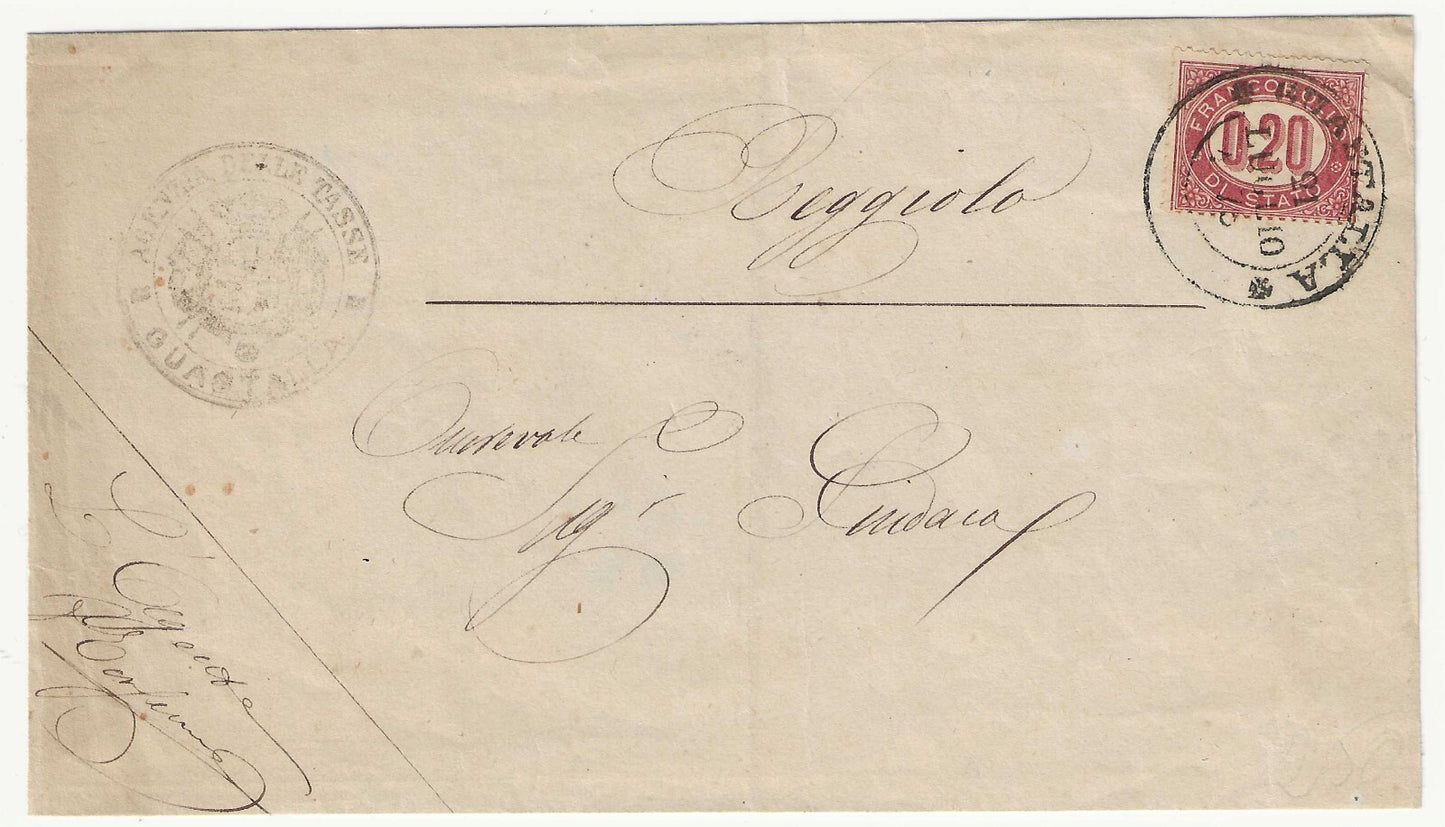 FRANCOBOLLO
0.20
DI STATO
GUASTALLA
LUGLIO
AGENZIA DELLE TASSE
GUASTALLA
Reggiolo
Onorevole
Sigr Sindaco
L'Agente